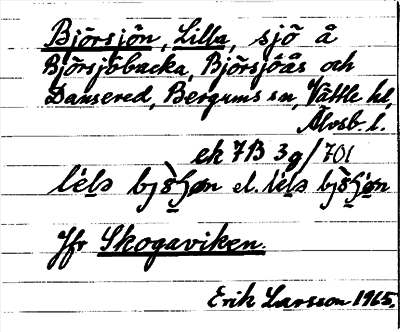 Björsjön, Lilla, sjö å
Björsjöbacka, Björsjöås och
Dansered, Bergums sn, Vättle hd,
Älvsb. l.
ek 7B 3g/701
el.
Jfr Skogaviken.
Erik Larsson 1965.